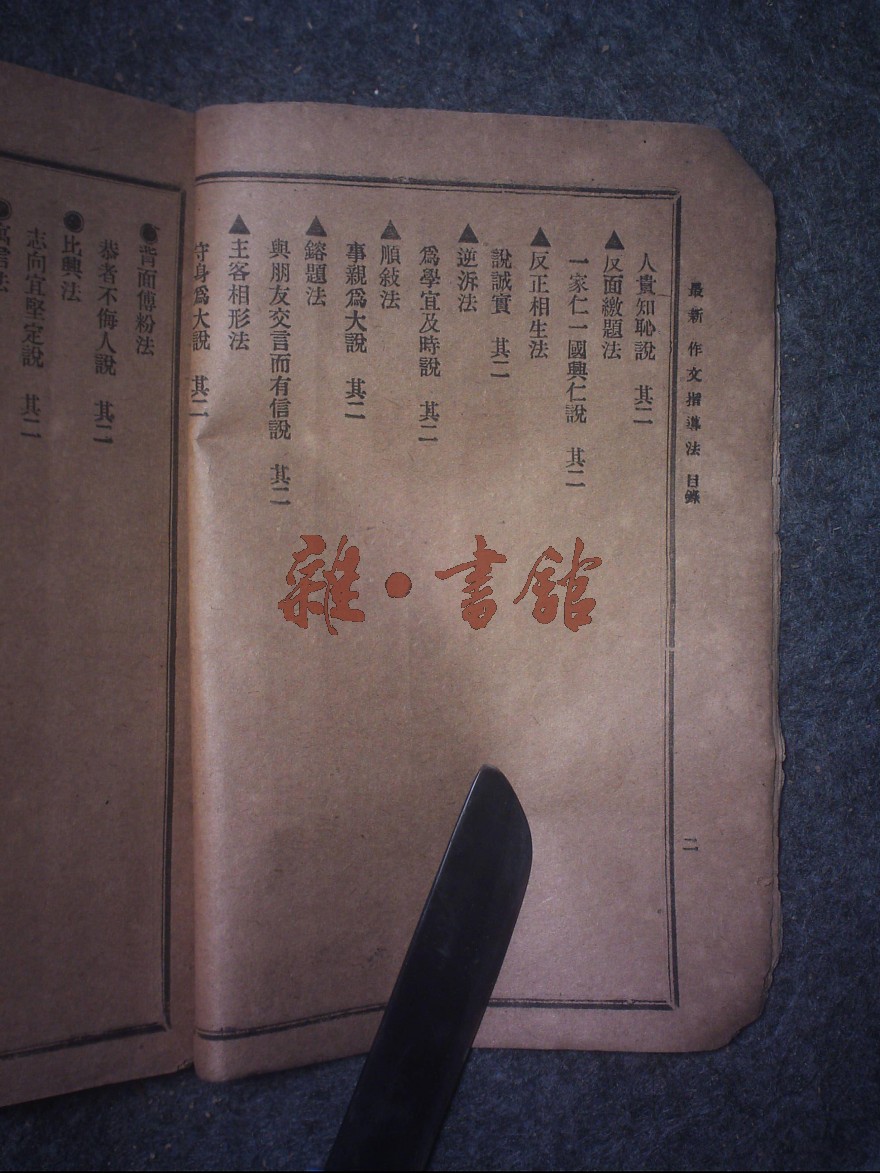 最新作文指導法 目錄
二
人貴知恥說 其二
▲反面繳題法
一家仁一國興仁說 其二
▲反正相生法
說誠實 其二
▲逆泝法
爲學宜及時說 其二
▲順敍法
事親爲大說 其二
▲鎔題法
與朋友交言而有信說 其二
▲主客相形法
守身爲大說 其二
背面傅粉法
恭者不侮人說 其二
比興法
志向宜堅定說 其二
寓言法
雜·書館